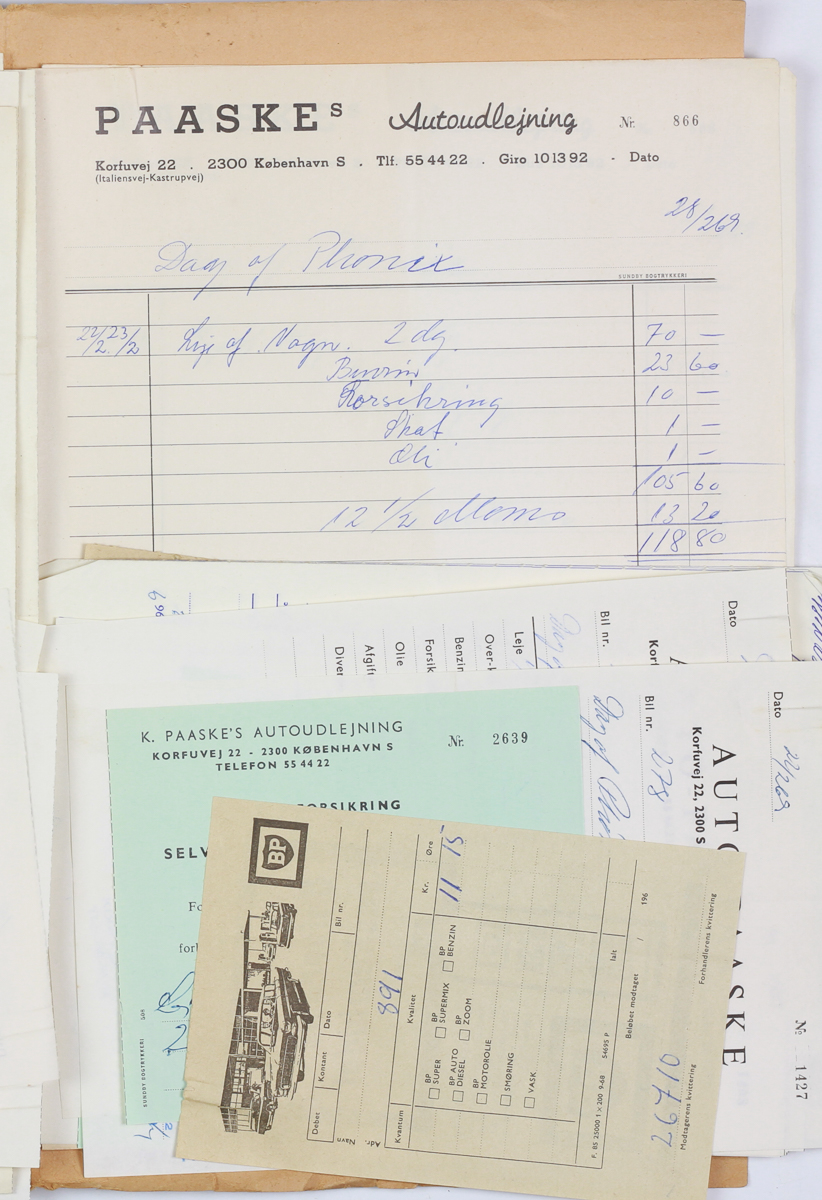 PAASKEs Autoudlejning Nr. 866
Korfuvej 22 . 2300 København S . Tlf. 55 44 22 . Giro 101392 - Dato
(Italiensvej-Kastrupvej)
28/269.
Dag of Phonix
SUNDBY BOGTRYKKERI
22/2 23/2 Leje af Vogn. 2 dg. 70 —
Benzin 23 60
Forsikring 10 —
Skat 1 —
Oli 1 —
105 60
12 1/2 Moms 13 20
118 80
Dato
Bil nr.
Leje
Over-k
Benzin
Forsik
Olie
Afgift
Diver
K. PAASKE'S AUTOUDLEJNING
KORFUVEJ 22 - 2300 KØBENHAVN S
TELEFON 55 44 22
Nr. 2639
FORSIKRING
SELV
Fo
forl
SUNDBY BOGTRYKKERI
Dato 22/269
AUTO
PAASKE
Korfuvej 22, 2300 S
Bil nr. 278
Dag of
No 1427
BP
Debet
Kontant
Dato
Bil nr.
Navn
Adr.
891
Kvantum
Kvalitet
Kr.
Øre
11 15
BP SUPER
BP SUPERMIX
BP BENZIN
BP AUTO DIESEL
BP ZOOM
BP MOTOROLIE
SMØRING
VASK
Ialt
F. BS 25000 1 × 200 9-68 54695 P
Beløbet modtaget / 196
26710
Modtagerens kvittering
Forhandlerens kvittering